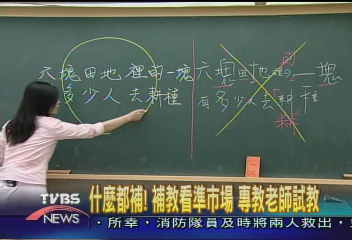 六塊田地裡的一塊
多少人去耕種
六塊田地裡的一塊
有多少人去耕種
耕
TVBS
NEWS
什麼都補! 補教看準市場 專教老師試教
‧所幸,消防隊員及時將兩人救出‧